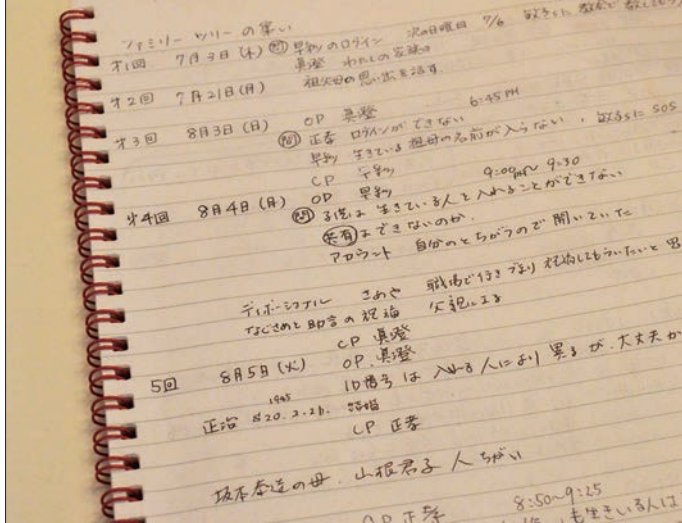 ファミリーツリーの集い
才1回 7月3日(木) 問 早紀のログイン 次の日曜日 7/6
真澄 わたしの家族は
才2回 7月21日(月) 祖父母の思い出を話す.
才3回 8月3日(日) OP 真澄 6:45 PM
問 正孝 ログインができない
早紀 生きている祖母の名前が入らない, SOS
CP 早紀
才4回 8月4日(月) OP 早紀 9:00 PM~ 9:30
問 子供は 生きている人を入れることができない
共有はできないのか.
アカウント 自分のとちがうので 開いていた
ディボーショナル さあや 職場で行きづまり 祝福してもらいたいと
なぐさめと助言の祝福 父親による
CP 真澄
5回 8月5日(火) OP. 真澄
ID番号は 入れる人により 異るが.大丈夫か
1945
正治 S20.2.26. 結婚
CP 正孝
坂本 の母. 山根君子 人ちがい
OP 正孝 8:50~9:25
も生きている人は